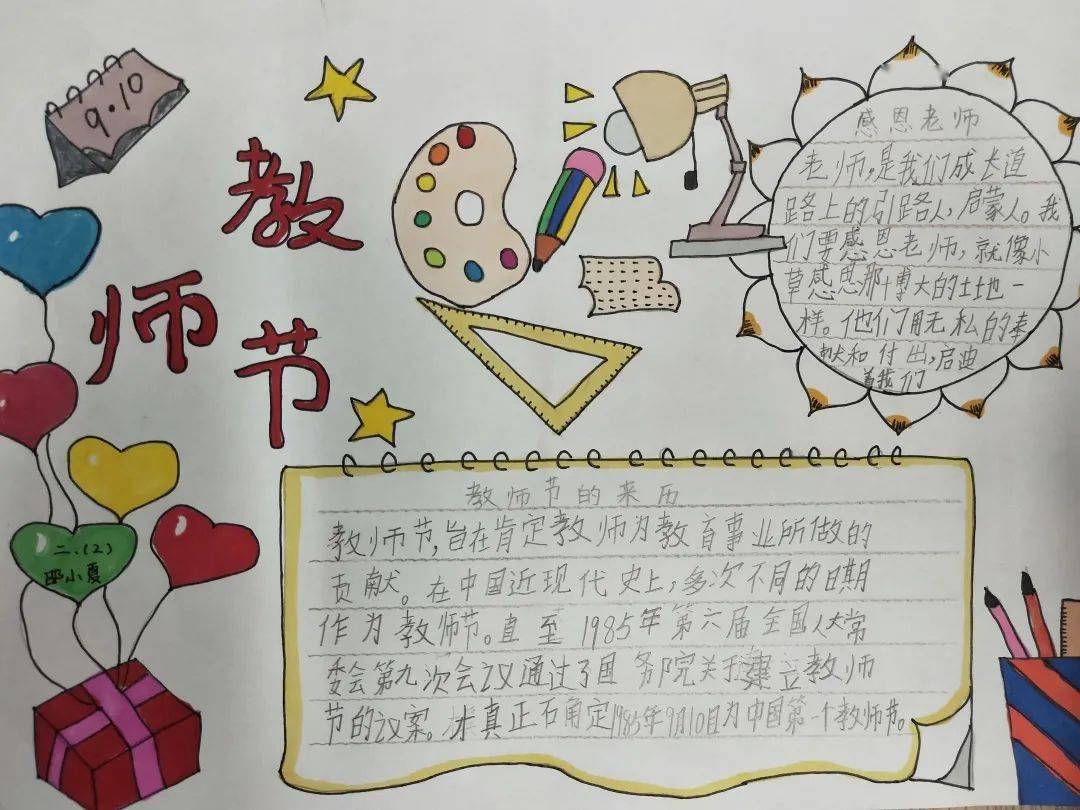 9.10
教
师
节
感恩老师
老师,是我们成长道
路上的引路人,启蒙人。我
们要感恩老师,就像小
草感恩那博大的土地一
样。他们用无私的奉
献和付出,启迪
着我们
二.(2)
邵小夏
教师节的来历
教师节,旨在肯定教师为教育事业所做的
贡献。在中国近现代史上,多次不同的日期
作为教师节。直至1985年第六届全国人大常
委会第九次会议通过了国务院关于建立教师
节的议案。才真正确定1985年9月10日为中国第一个教师节。